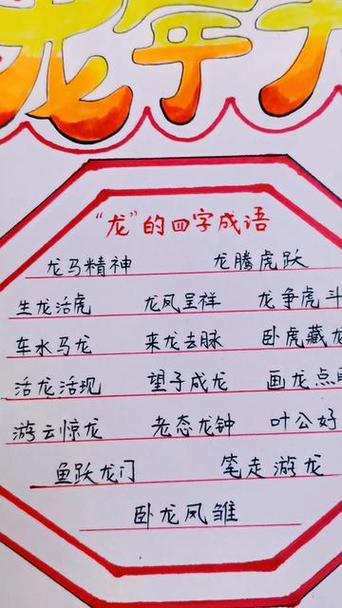 龙年
“龙”的四字成语
龙马精神 龙腾虎跃
生龙活虎 龙凤呈祥 龙争虎斗
车水马龙 来龙去脉 卧虎藏龙
活龙活现 望子成龙 画龙点
游云惊龙 老态龙钟 叶公好
鱼跃龙门 笔走游龙
卧龙凤雏